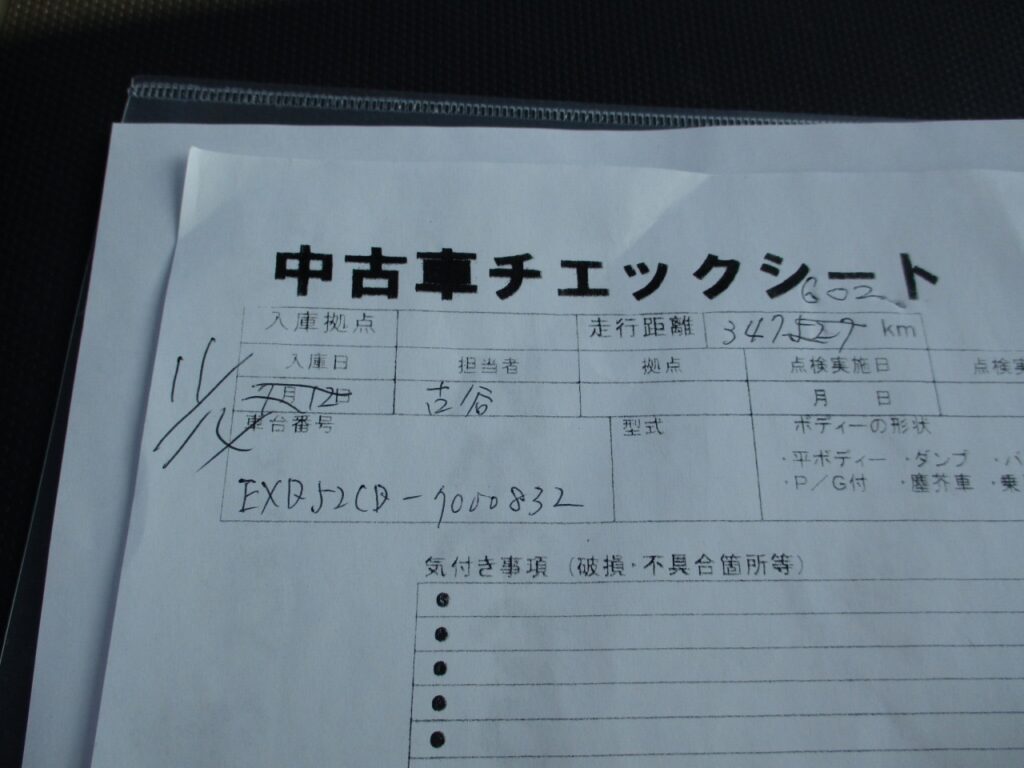 中古車チェックシート
602
入庫拠点 走行距離 347527 km
入庫日 担当者 拠点 点検実施日 点検実
11/14
月12日 古谷 月 日
車台番号 型式 ボディーの形状
・平ボディー ・ダンプ ・バ
・P/G付 ・塵芥車 ・乗
EXD52CD-7000832
気付き事項 (破損・不具合箇所等)
●
●
●
●
●